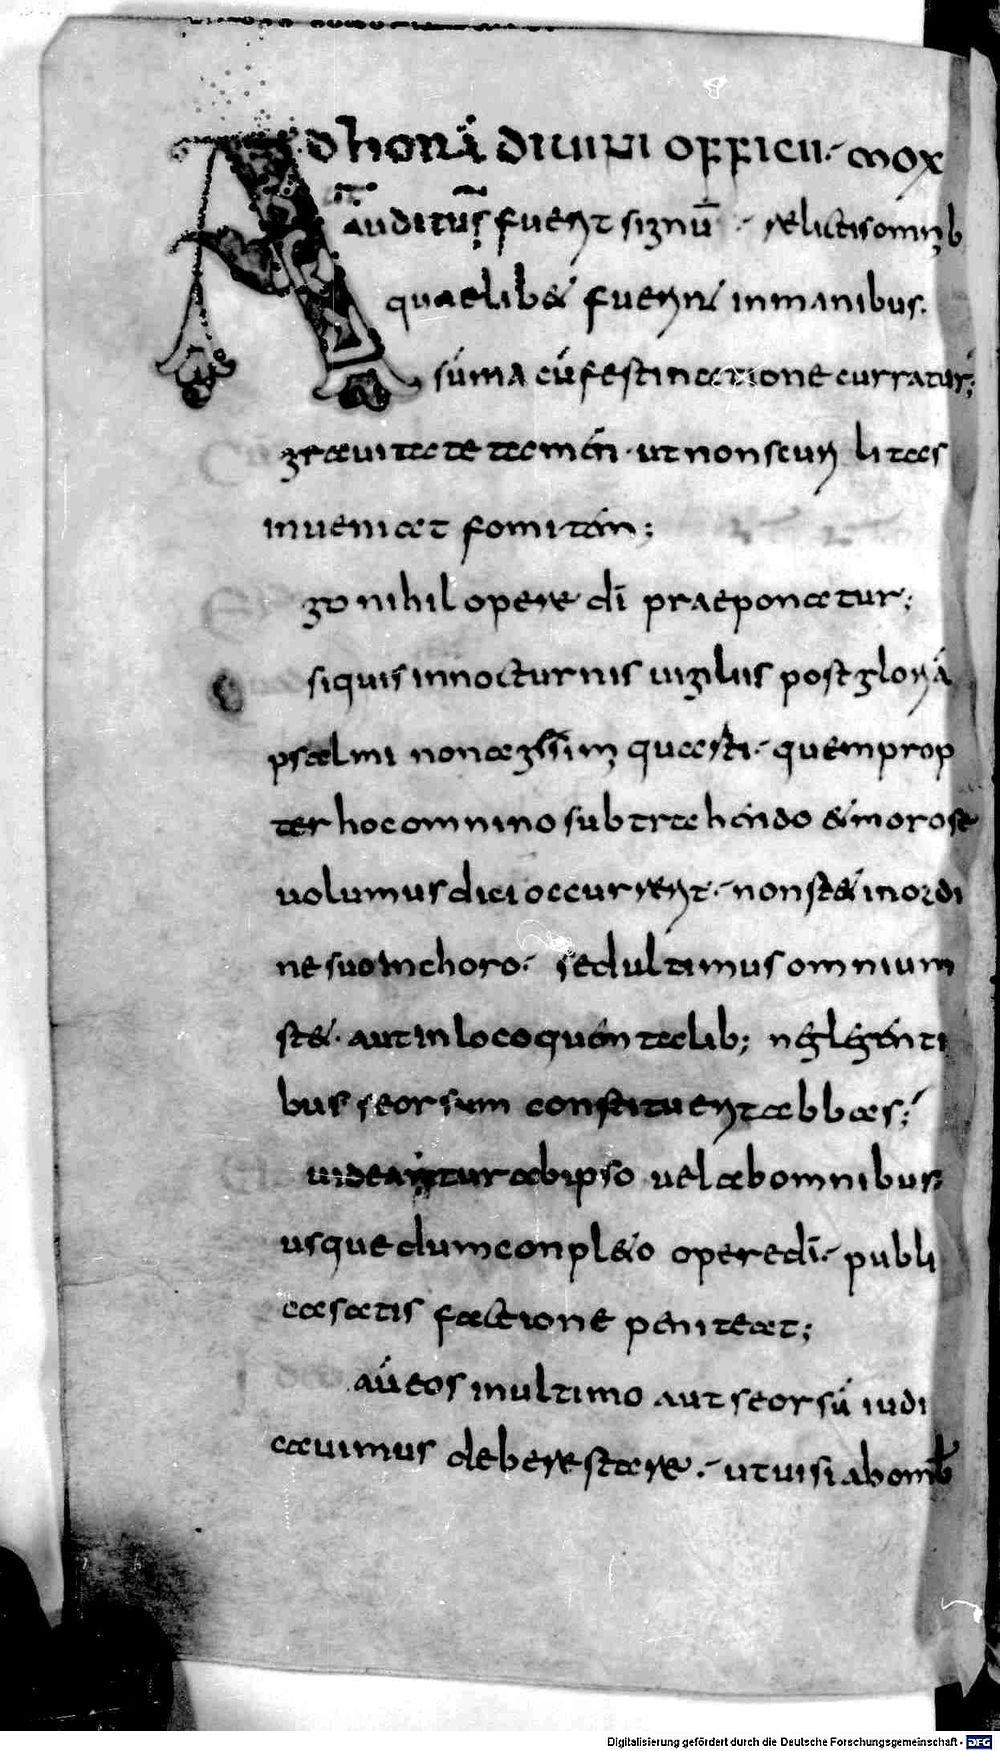 Ad horā diuini officii · mox
auditus fuerit signū · relictis omnib
quaelibet fuerint in manibus ·
sūma cū festinatione curratur;
grauitate tamen · ut non scurrilitas
inueniat fomitem;
go nihil opere dī praeponatur;
siquis in nocturnis uigiliis post gloriā
psalmi nonagissimi quarti · quem prop
ter hoc omnino subtrahendo & morose
uolumus dici occurrerit · non st& in ordi
ne suo in choro · sed ultimus omnium
st& · aut in loco quem talib; neglegenti
bus seorsum constituerit abbas;
uideantur ab ipso uel ab omnibus
usque dum conpl&o opere dī · publi
ca satisfactione peniteat;
aū eos in ultimo aut seorsū iudi
cauimus debere stare · ut uisi ab omīb
Digitalisierung gefördert durch die Deutsche Forschungsgemeinschaft - DFG